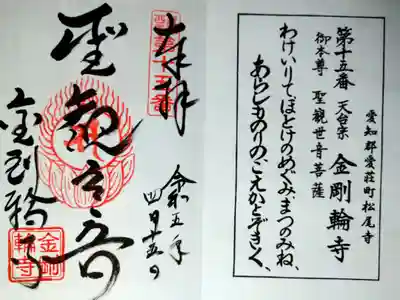 愛知郡愛荘町松尾寺
第十五番 天台宗 金剛輪寺
御本尊 聖観世音菩薩
わけいりてほとけのめぐみ、まつのみね、
あらしものりのこえかとぞきく、
奉拝
令和五年
四月十五日
金剛輪寺
金剛輪寺